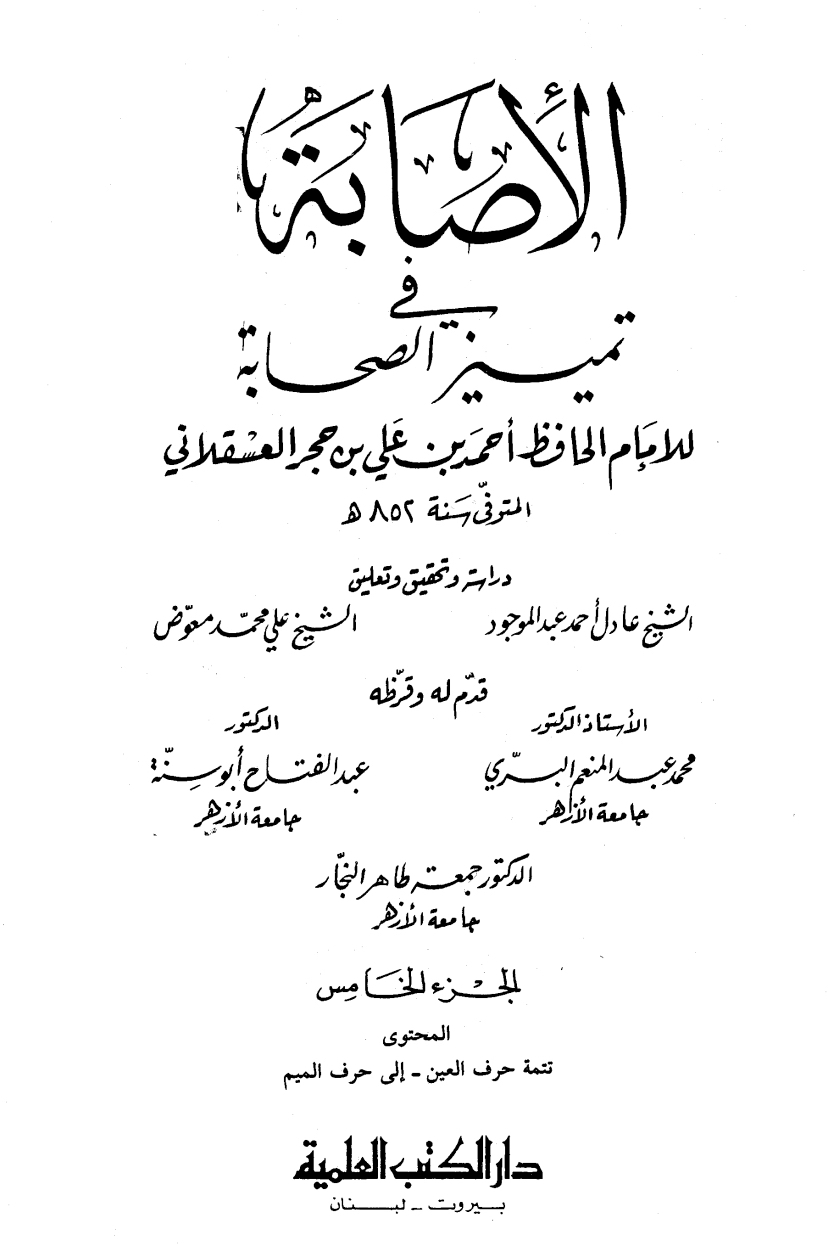 الأصابة
في
تمييز الصحابة
للإمام الحافظ أحمد بن علي بن حجر العسقلاني
المتوفى سنة ٨٥٢ هـ
دراسة وتحقيق وتعليق
الشيخ عادل أحمد عبد الموجود الشيخ علي محمد معوض
قدم له وقرظه
الأستاذ الدكتور الدكتور
محمد عبد المنعم البري عبد الفتاح أبو سنة
جامعة الأزهر جامعة الأزهر
الدكتور جمعة طاهر النجار
جامعة الأزهر
الجزء الخامس
المحتوى
تتمة حرف العين - إلى حرف الميم
دار الكتب العلمية
بيروت - لبنان